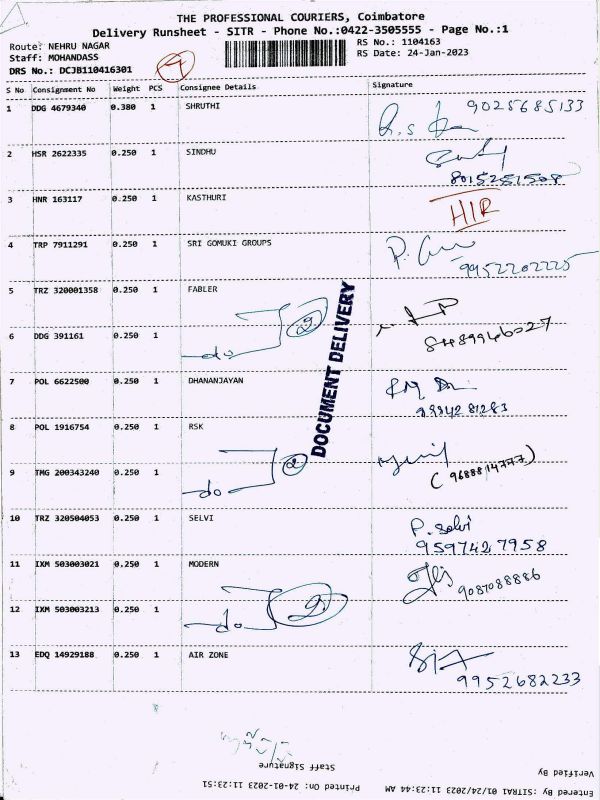 THE PROFESSIONAL COURIERS, Coimbatore
Delivery Runsheet - SITR - Phone No.:0422-3505555 - Page No.:1
Route: NEHRU NAGAR RS No.: 1104163
Staff: MOHANDASS RS Date: 24-Jan-2023
DRS No.: DCJB110416301
S No Consignment No Weight PCS Consignee Details Signature
1 DDG 4679340 0.380 1 SHRUTHI 9025685133
2 HSR 2622335 0.250 1 SINDHU
8015251508
3 HNR 163117 0.250 1 KASTHURI
4 TRP 7911291 0.250 1 SRI GOMUKI GROUPS
9952202225
5 TRZ 320001358 0.250 1 FABLER
2
6 DDG 391161 0.250 1 do 8489946027
DOCUMENT DELIVERY
7 POL 6622500 0.250 1 DHANANJAYAN
8 POL 1916754 0.250 1 RSK
2
9 TMG 200343240 0.250 1 do (9688814777)
10 TRZ 320504053 0.250 1 SELVI P. Selvi
9597427958
11 IXM 503003021 0.250 1 MODERN
9087088886
12 IXM 503003213 0.250 1 do 2
13 EDQ 14929188 0.250 1 AIR ZONE
9952682233
Staff Signature
Verified By
Printed On: 24-01-2023 11:23:51
Entered By :SITRA1 01/24/2023 11:23:44 AM